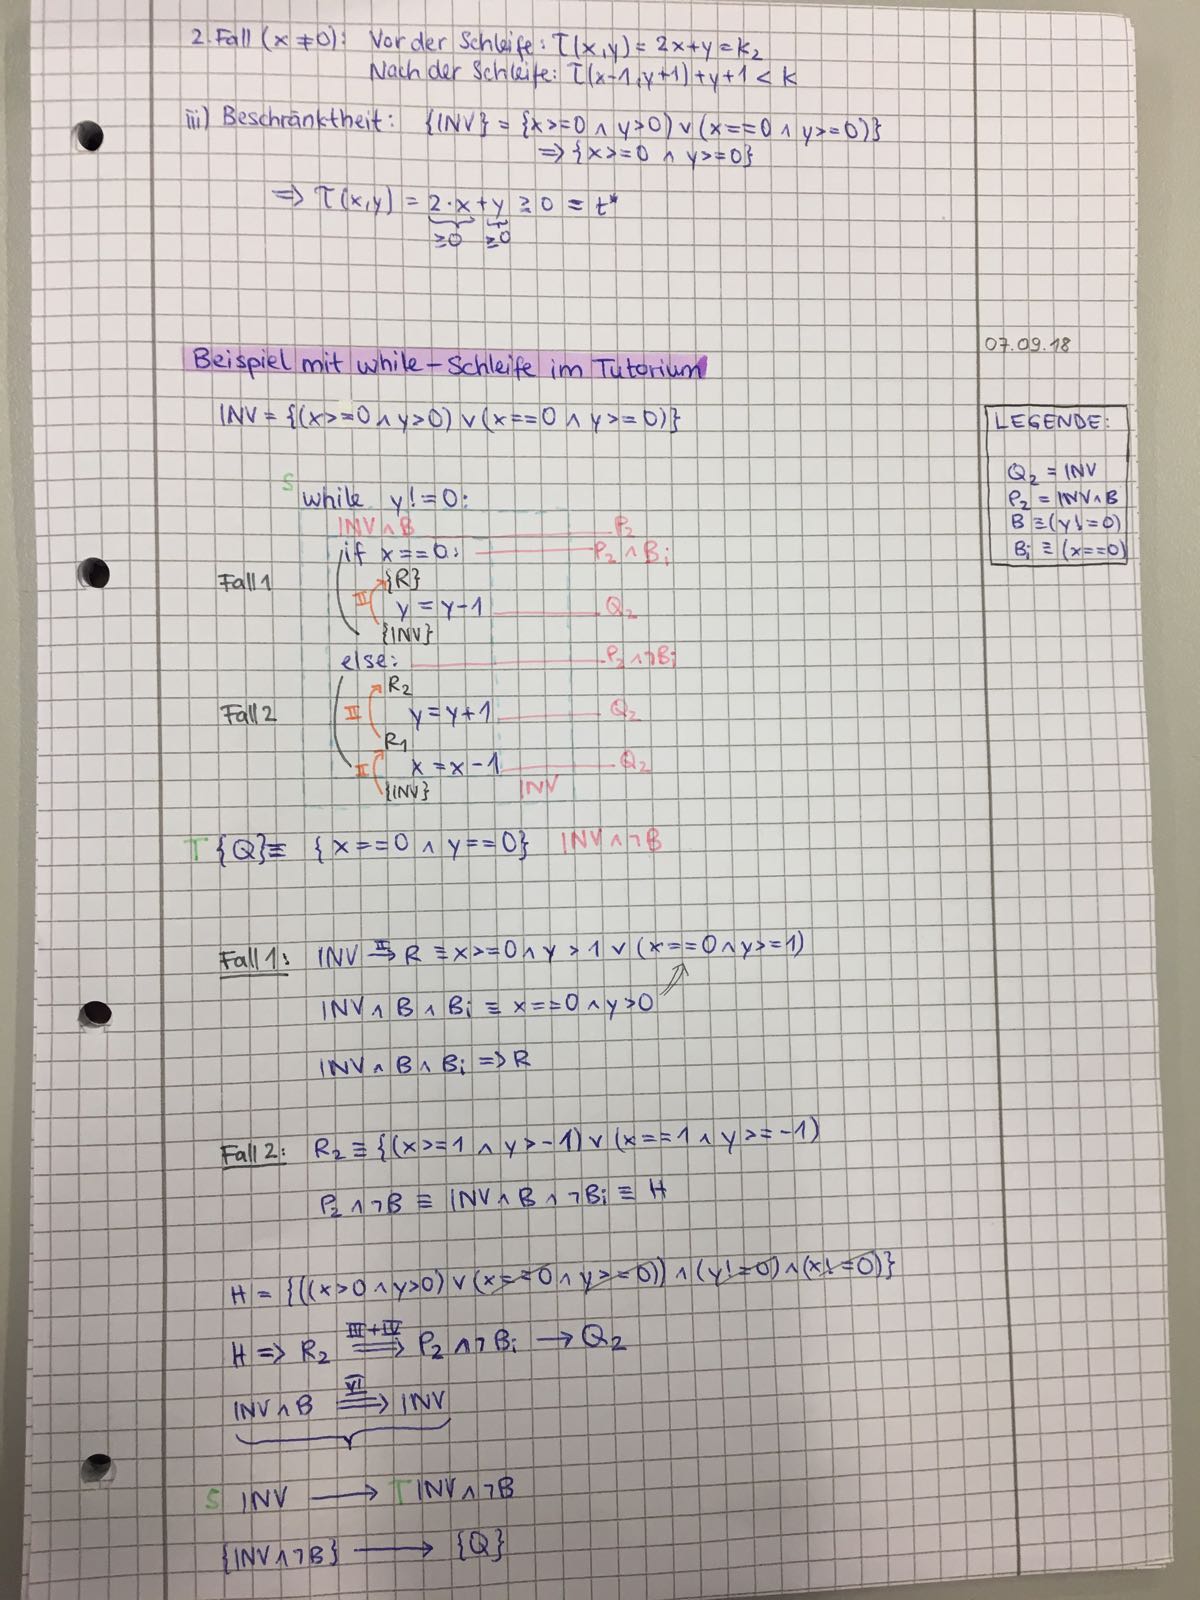 2. Fall (x ≠ 0): Vor der Schleife: T(x,y) = 2x+y = k₂
Nach der Schleife: T(x-1, y+1) + y+1 < k
iii) Beschränktheit: {INV} = {x>=0 ∧ y>0) ∨ (x==0 ∧ y>=0)}
=> {x>=0 ∧ y>=0}
=> T(x,y) = 2·x + y ≥ 0 = t*
≥0 ≥0
07.09.18
Beispiel mit while-Schleife im Tutorium
INV = {(x>=0 ∧ y>0) ∨ (x==0 ∧ y>=0)}
LEGENDE:
Q₂ = INV
P₂ = INV ∧ B
B ≡ (y!=0)
Bᵢ ≡ (x==0)
S while y!=0:
INV ∧ B P₂
if x==0: P₂ ∧ Bᵢ
Fall 1 {R}
II y = y-1 Q₂
{INV}
else: P₂ ∧ ¬Bᵢ
R₂
Fall 2 II y = y+1 Q₂
R₁
II x = x-1 Q₂
{INV} INV
T {Q} ≡ {x==0 ∧ y==0} INV ∧ ¬B
Fall 1: INV =II=> R ≡ x>=0 ∧ y>1 ∨ (x==0 ∧ y>=1)
INV ∧ B ∧ Bᵢ ≡ x==0 ∧ y>0
INV ∧ B ∧ Bᵢ => R
Fall 2: R₂ ≡ {(x>=1 ∧ y>-1) ∨ (x==1 ∧ y>=-1)
P₂ ∧ ¬B ≡ INV ∧ B ∧ ¬Bᵢ ≡ H
H = {((x>0 ∧ y>0) ∨ (x==0 ∧ y>=0)) ∧ (y!=0) ∧ (x!=0)}
H => R₂ =III+IV=> P₂ ∧ ¬Bᵢ → Q₂
INV ∧ B =VI=> INV
S INV → T INV ∧ ¬B
{INV ∧ ¬B} → {Q}